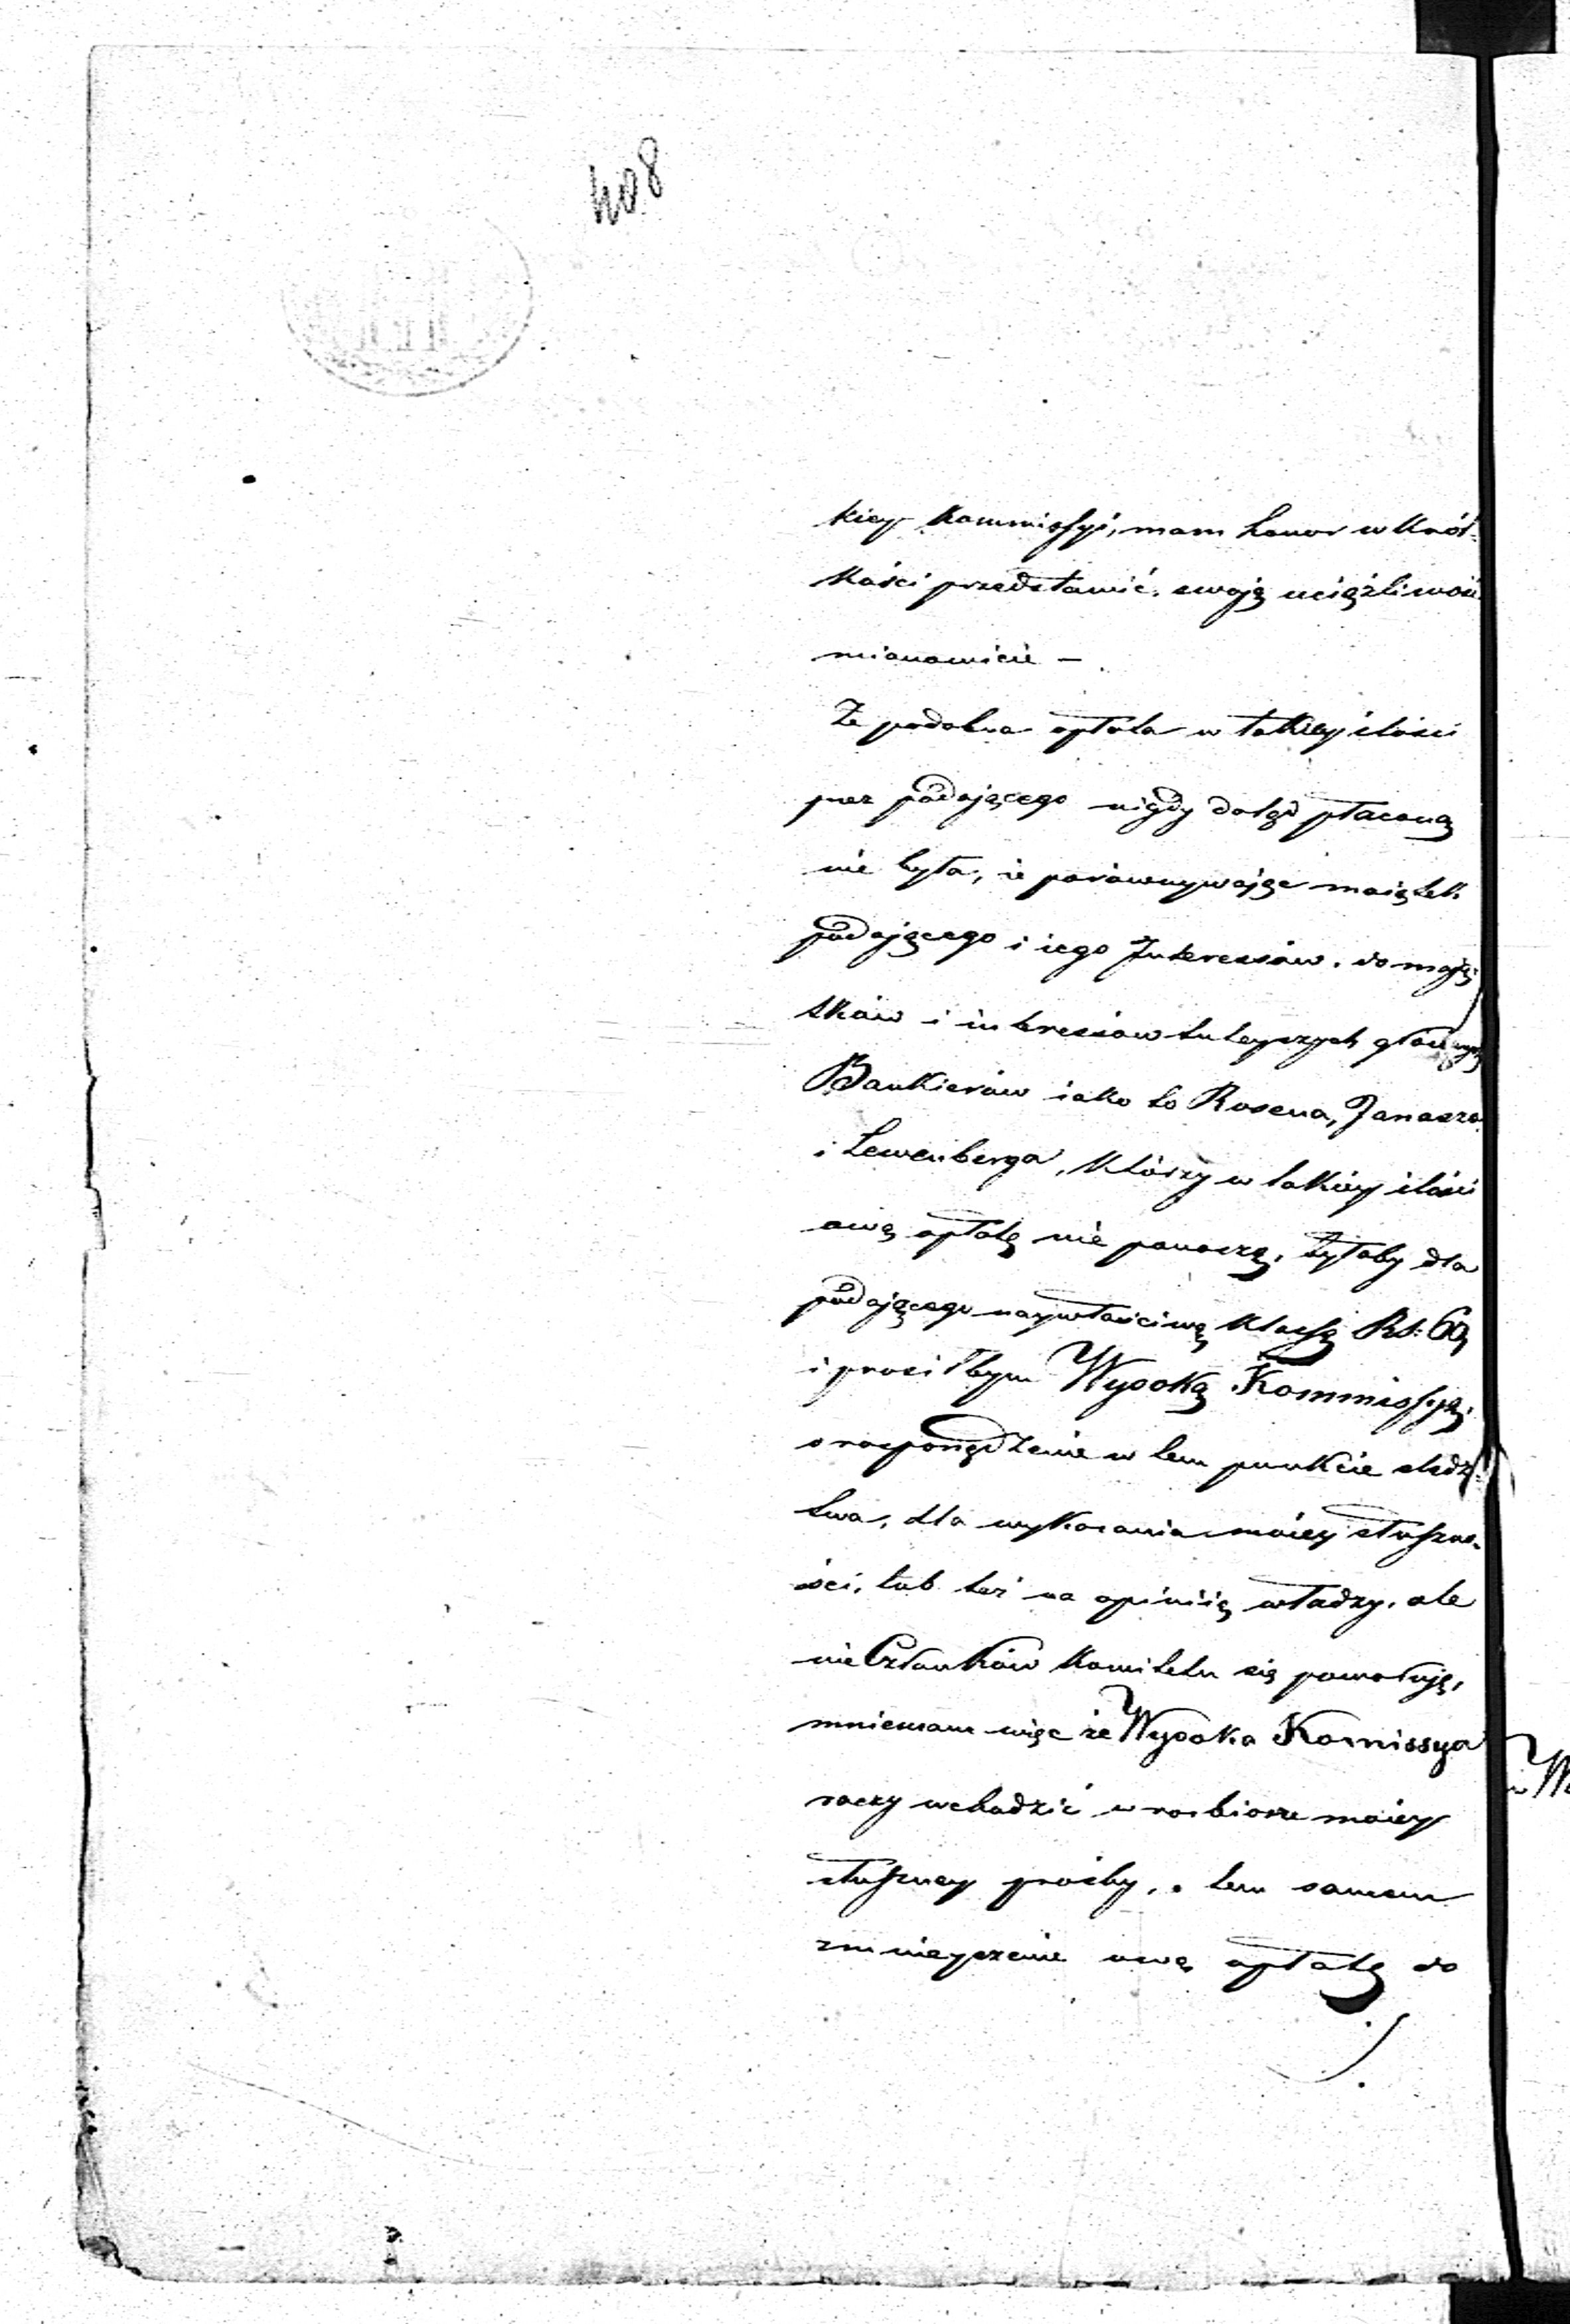 408
kiey Kommissyi, mam honor w Krót-
kości przedstawić swoją uciążliwość
mianowicie —
Że podobna opłata w takiey ilości
przez podającego nigdy dotąd płaconą
nie była, że porównywając maiątek
podającego i iego Interessów, do mają-
tków i interessów tuteyszych głównych
Bankierów iako to Rosena, Janasza
i Lewenberga, którzy w takiey ilości
ową opłatę nie ponoszą, byłaby dla
podającego naywłaściwą klassą Rs: 60,
i prosiłbym Wysoką Kommissyą,
o rosporządzenie w tem punkcie śledz-
twa, dla wykazania moiey słuszno-
ści, lub też na opinię władzy, ale
nie Członków Komitetu się powołuję,
mniemam więc że Wysoka Komissya
raczy wchodzić w rozbiorze moiey
słuszney prośby, o tem samem
zmnieyszenie ową opłatę do